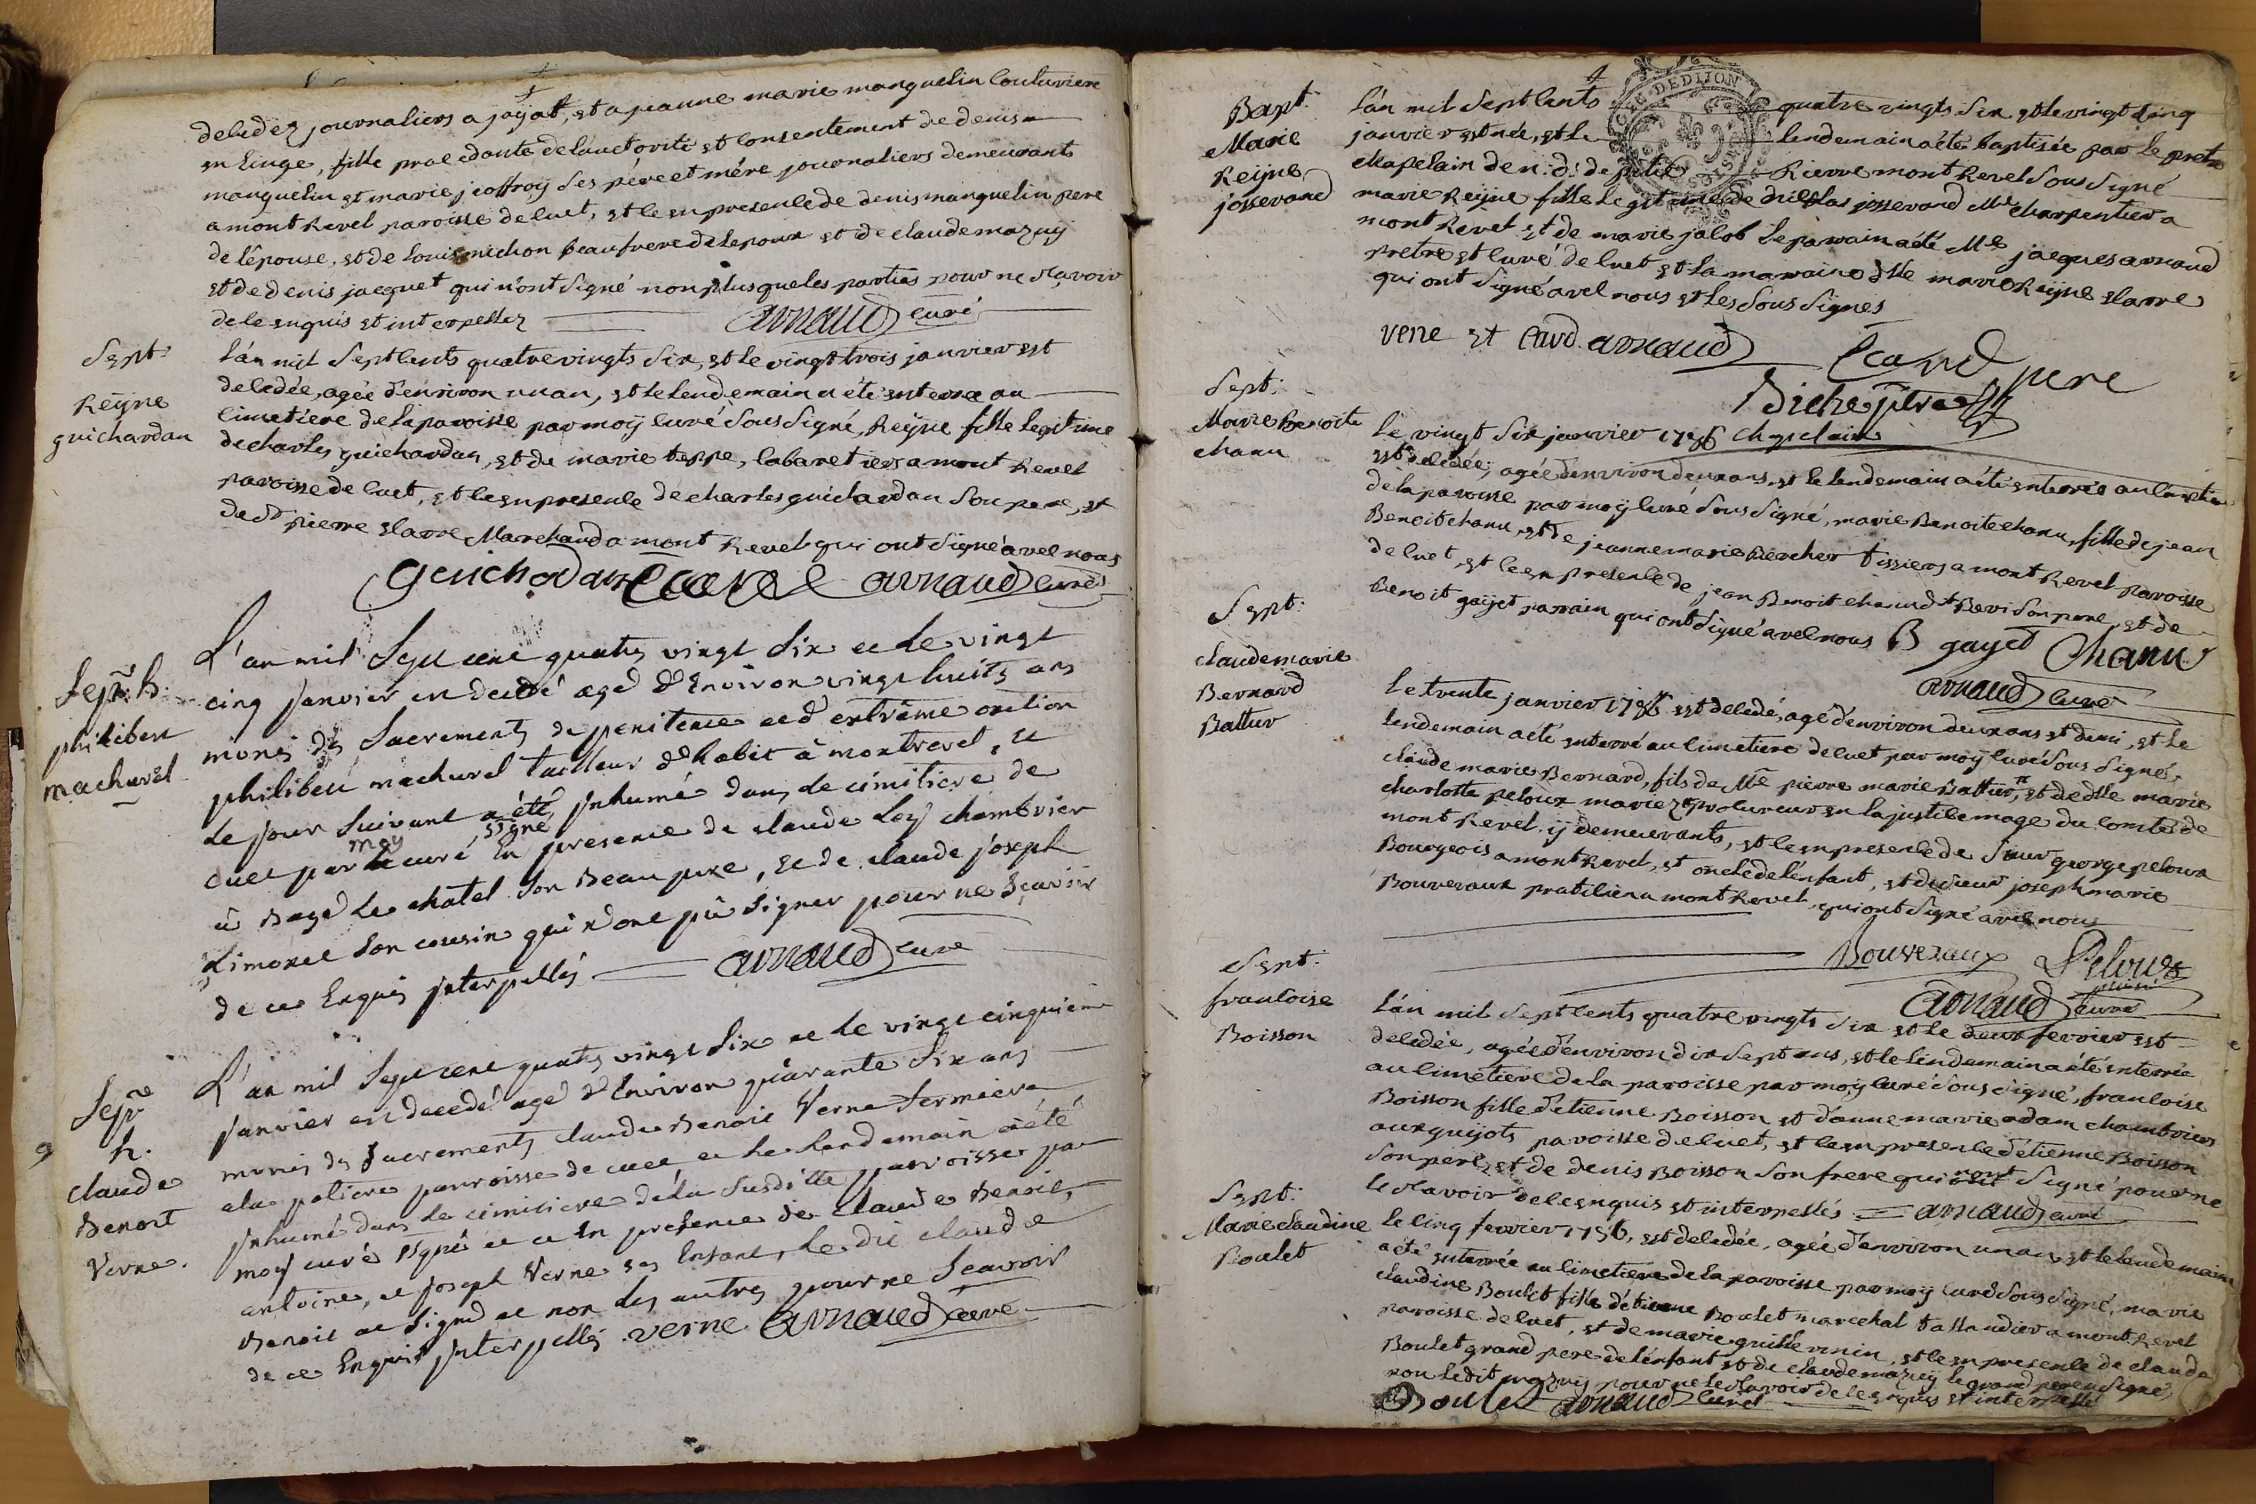 decedez journaliers a jayat, et a jeanne marie manguelin couturiere
en linge, fille procedante de l'auctorité et consentement de denis
manguelin et marie jeoffroy ses père et mére journaliers demeurants
a montrevel paroisse de cuet, et ce en presence de denis manguelin pere
de l'épouse, et de louis michon beaufrere de lepoux et de claude mazuy
et de denis jacquet qui n'ont signé non plus que les parties pour ne sçavoir
de ce enquis et interpellez arnaud curé
Sept:
Reÿne
guichardan
L'an mil sept cents quatre vingts six, et le vingt trois janvier est
decedée, agée d'environ un an, et le lendemain a été enterré au
cimetiére de la paroisse par moÿ curé sous signé, Reÿne fille legitime
de charles guichardan, et de marie teppe, cabaretiers a mont Revel
paroisse de cuet, et ce en presence de charles guichardan son pere, et
de Sr pierre Marchand a mont Revel qui ont signé avec nous
Guichardan arnaud curé
Sept: h.
philibert
machurel
L'an mil sept cent quatre vingt six et le vingt
cinq janvier est decedé agé d'environ vingt huits ans
munis des Sacrements de penitence et d'extrême onction
philibert machurel tailleur d'habit à montrevel, et
le jour suivant a été inhumé dans le cimitiere de
cuet par moy curé signé En presence de claude Loy chambrier
à Bagé le chatel son Beau pere, et de claude joseph
Limonet son cousin qui n'ont pû signer pour ne sçavoir
de ce Enquis interpellés arnaud curé
Sepre
h.
claude
Benoit
Verne.
L'an mil sept cent quatre vingt six et le vingt cinquieme
janvier est decedé agé d'Environ quarante six ans
munis des sacrements claude Benoit Verne fermier
a la poliere parroisse de cuet, et le lendemain a été
inhumé dans le cimitiere de la susditte parroisse par
moy curé signé et ce En presence de claude Benoit,
antoine, et joseph Verne ses Enfants, le dit claude
Benoit a signé et non les autres pour ne sçavoir
de ce Enquis interpellés. verne arnaud curé
4
Bapt:
Marie
Reÿne
jossevand
L'an mil sept cents quatre vingts six et le vingt cinq
janvier est née, et le lendemain a été baptisée par le pretre
chapelain de n: d: de pitié Pierre montRevel sous signé
marie Reÿne fille legitime de nicolas jossevand Me charpentier a
mont Revel et de marie jacob le parain a été Me jacques arnaud
pretre et curé de cuet et la maraine dlle marie Reÿne
qui ont signé avec nous et les sous signés
arnaud pere
Diche ptre
chapelain
Sept:
Marie Benoite
chanu
Le vingt six janvier 1786
est decedée, agée d'environ deux ans, et le lendemain a été enterrée au cimetiere
de la paroisse par moÿ curé sous signé, marie Benoite chanu, fille de jean
Benoit chanu, et de jeanne marie Bercher tissiers a mont Revel paroisse
de cuet, et ce en presence de jean Benoit chanu son pere, et de
Benoit gayet parain qui ont signé avec nous B gayet Chanu
arnaud curé
Sept:
claude marie
Bernard
Battur
Le trente janvier 1786 est decedé, agé d'environ deux ans et demi, et le
lendemain a été enterré au cimetiere de cuet par moÿ curé sous signé,
claude marie Bernard, fils de Me pierre marie Battur, et de dlle marie
charlotte peloux mariez procureur en la justice mage du comté de
mont Revel ÿ demeurants, et ce en presence de Sieur george peloux
Bourgeois a montRevel, et oncle de l'enfant, et de sieur joseph marie
Bouveraux praticien a montRevel, qui ont signé avec nous
Bouveraux Peloux
arnaud curé
Sept:
francoise
Boisson
L'an mil sept cents quatre vingts six et le deux fevrier est
decedée, agée d'environ dix sept ans, et le lendemain a été enterrée
au cimetiere de la paroisse par moÿ curé sous signé, francoise
Boisson fille d'etienne Boisson et d'anne marie adam chambriers
aux guÿots paroisse de cuet, et ce en presence d'etienne Boisson
son pere, et de denis Boisson son frere qui n'ont signé pour ne
le sçavoir de ce enquis et interpellés arnaud curé
Sept:
Marie claudine
Boulet
Le cinq fevrier 1786, est decedée, agée d'environ un an, et le lendemain
a été enterrée au cimetiere de la paroisse par moÿ curé sous signé, marie
claudine Boulet fille d'etienne Boulet marechal taillandier a mont Revel
paroisse de cuet, et de marie guillermin, et ce en presence de claude
Boulet grand pere de l'enfant et de claude mazuÿ le grand pere a signé,
non ledit mazuÿ pour ne le sçavoir de ce enquis et interpellé
Boulet arnaud curé